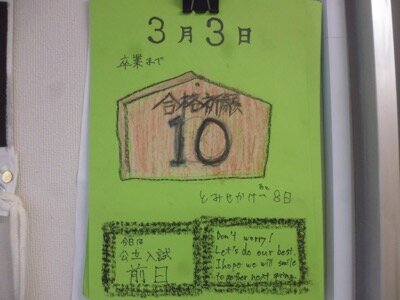 3月3日
卒業まで
合格祈願
10
とみせかけて
あと
8日
今日は
公立入試
前日
Don't worry!
Let's do our best
I hope we will smile
together next spring.